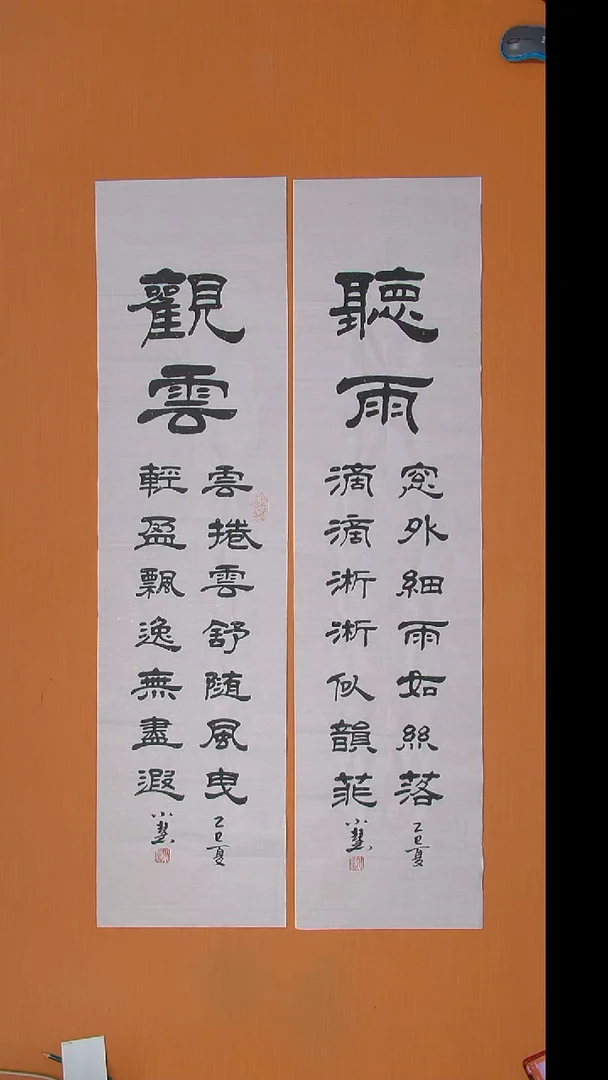 聽雨
窓外細雨如絲落
滴滴淅淅似韻菲
乙巳夏
觀雲
雲捲雲舒随風曳
輕盈飄逸無盡遐
乙巳夏